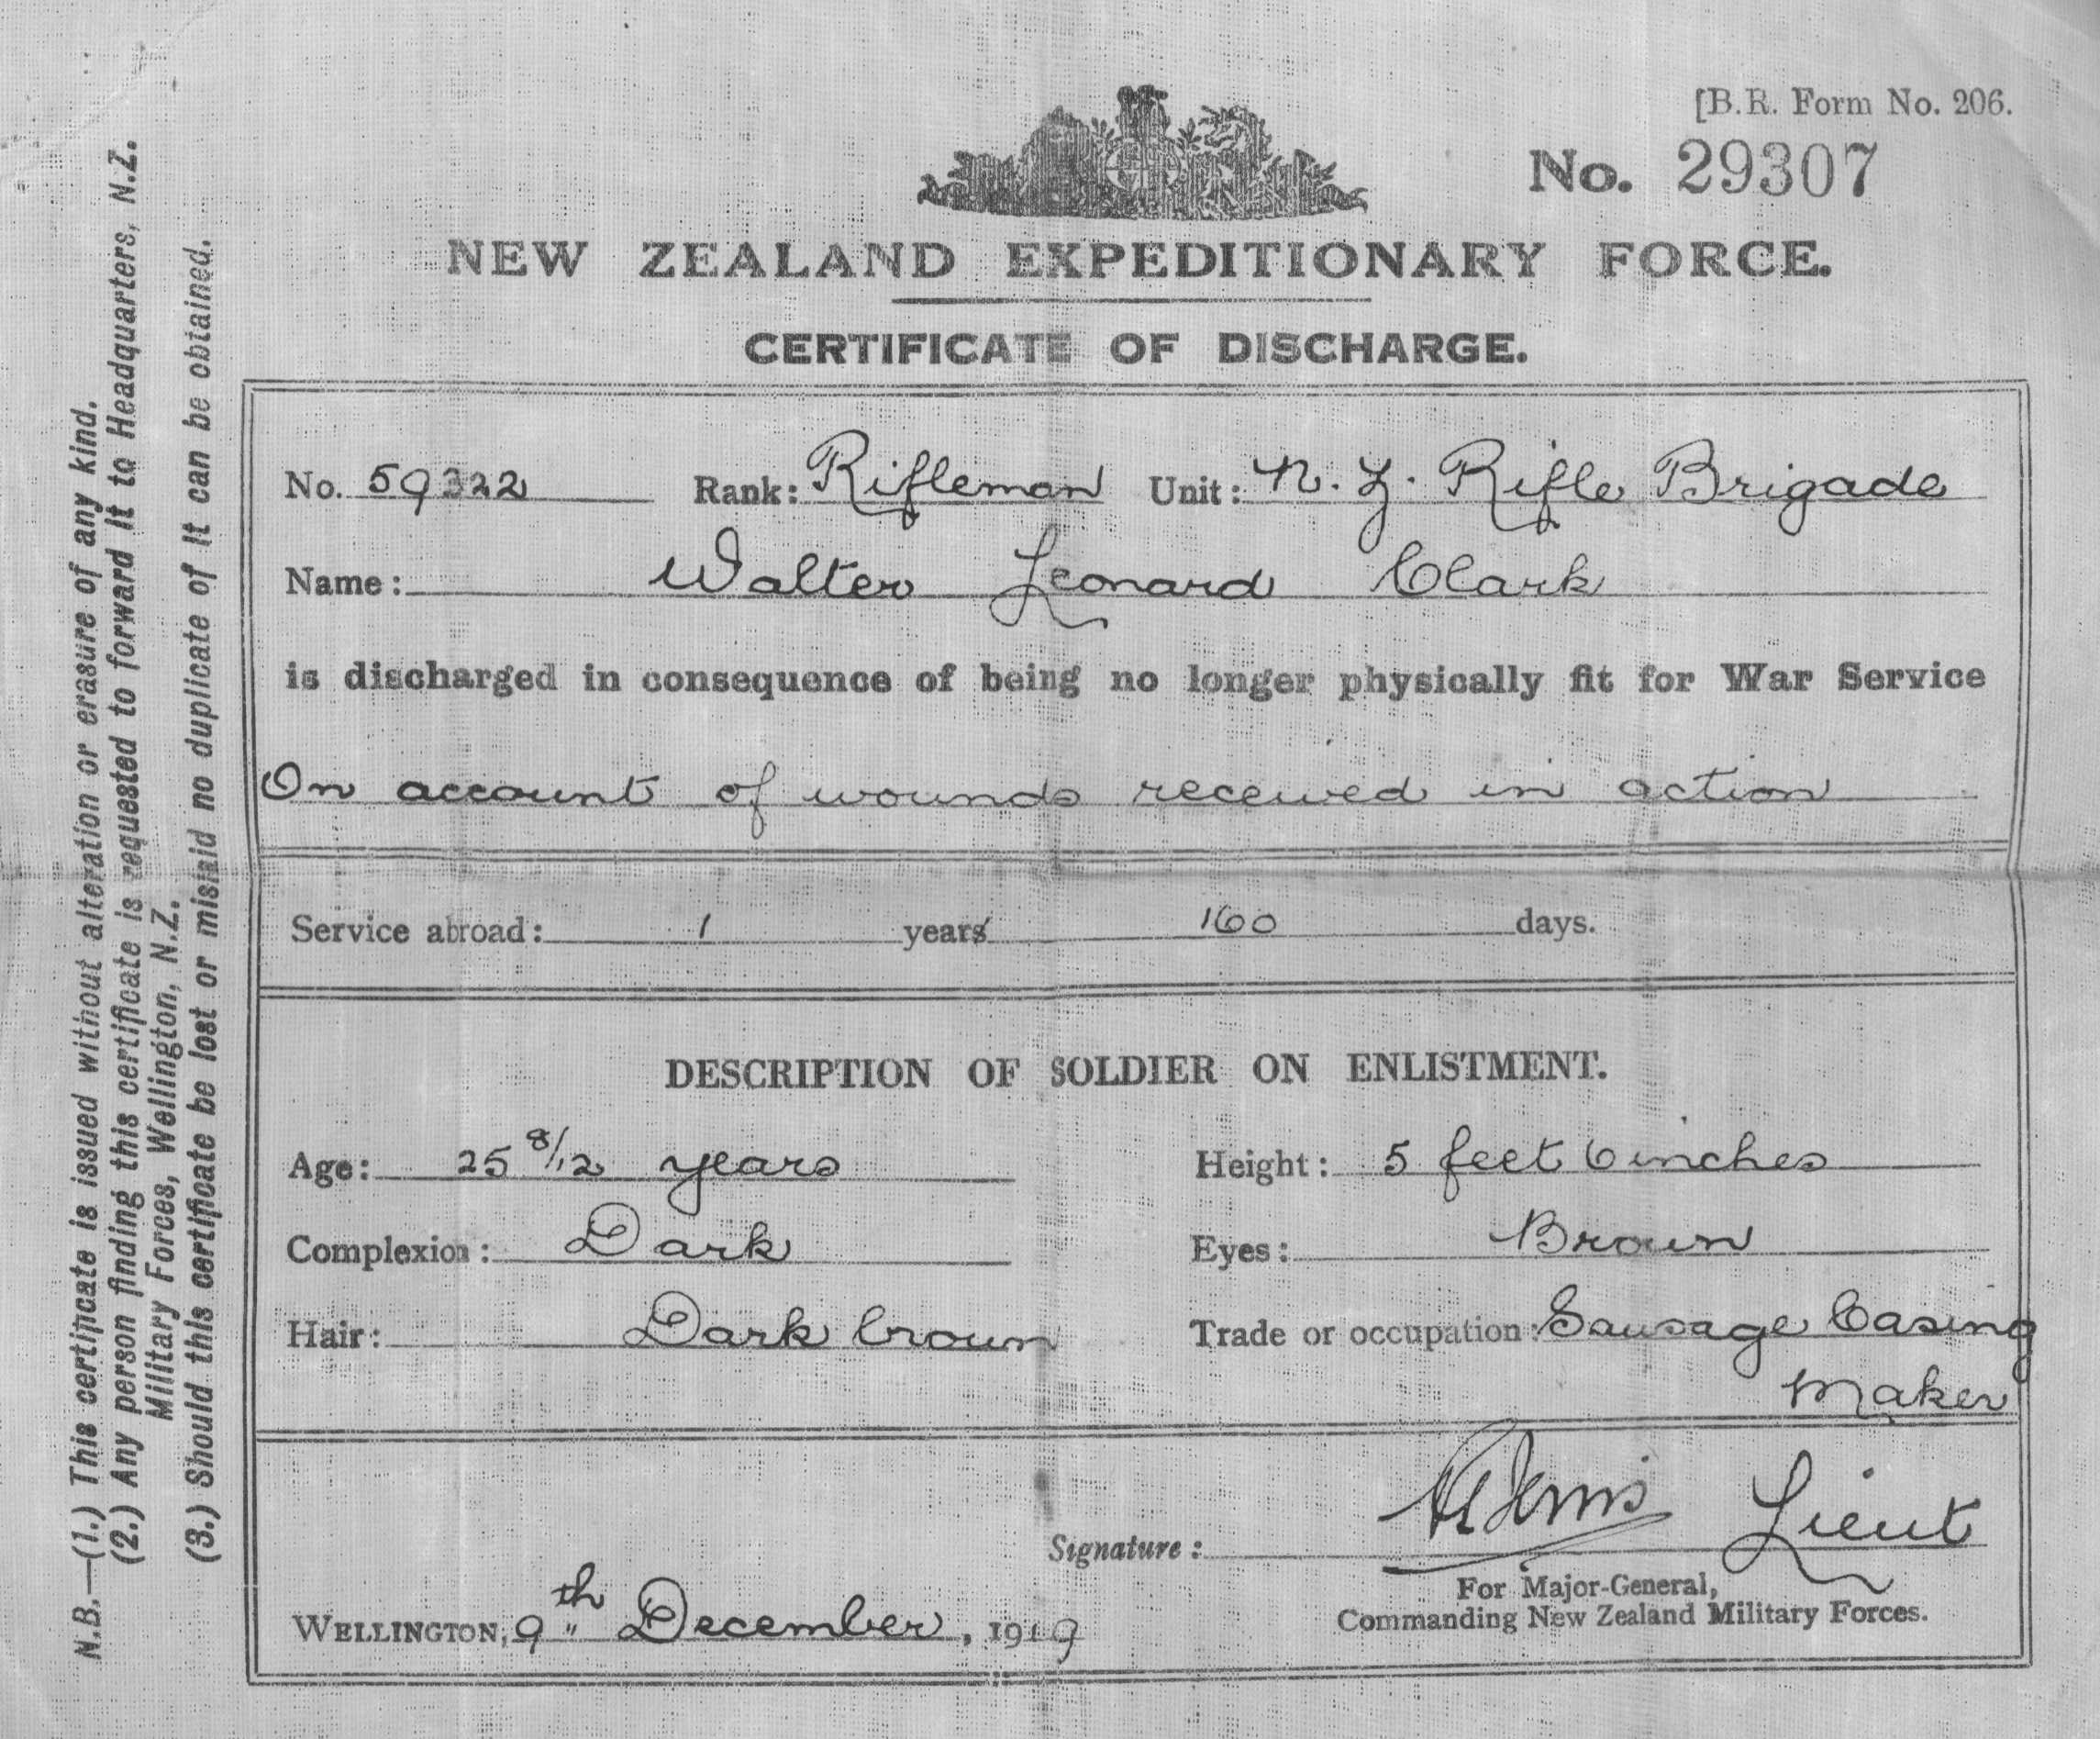 [B.R. Form No. 206.
No. 29307
NEW ZEALAND EXPEDITIONARY FORCE.
CERTIFICATE OF DISCHARGE.
No. 59322 Rank: Rifleman Unit: N. Z. Rifle Brigade
Name: Walter Leonard Clark
is discharged in consequence of being no longer physically fit for War Service
On account of wounds received in action
Service abroad: 1 years 160 days.
DESCRIPTION OF SOLDIER ON ENLISTMENT.
Age: 25 8/12 years Height: 5 feet 6 inches
Complexion: Dark Eyes: Brown
Hair: Dark brown Trade or occupation: Sausage Casing
Maker
Signature: Lieut
For Major-General,
Commanding New Zealand Military Forces.
WELLINGTON, 9th December, 1919
N.B.—(1.) This certificate is issued without alteration or erasure of any kind.
(2.) Any person finding this certificate is requested to forward it to Headquarters, N.Z.
Military Forces, Wellington, N.Z.
(3.) Should this certificate be lost or mislaid no duplicate of it can be obtained.